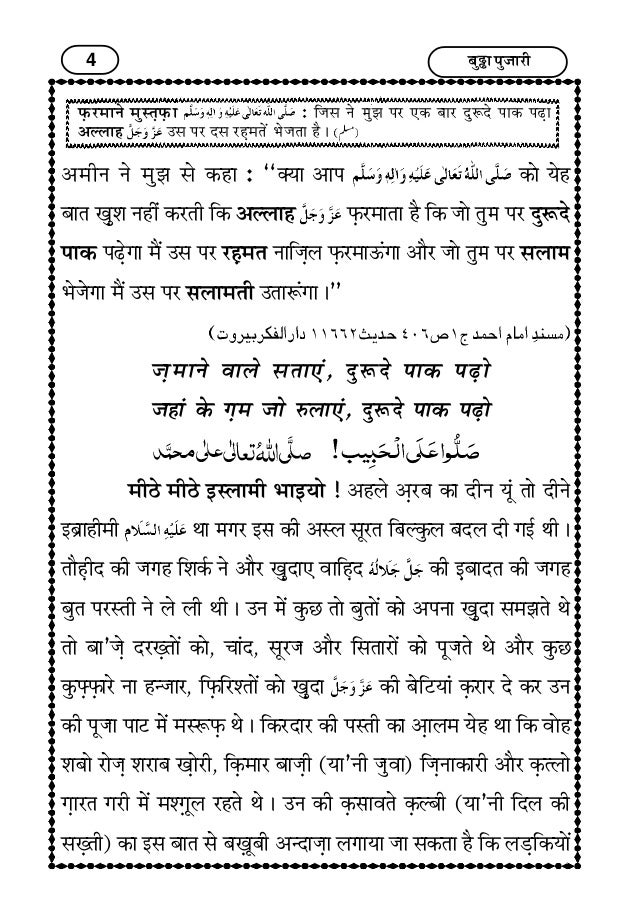 4
बुड्ढा पुजारी
फ़रमाने मुस्तफ़ा صَلَّى اللّٰهُ تَعَالٰى عَلَيْهِ وَاٰلِهٖ وَسَلَّم : जिस ने मुझ पर एक बार दुरूदे पाक पढ़ा
अल्लाह عَزَّ وَجَلَّ उस पर दस रह़मतें भेजता है । (مسلم)
अमीन ने मुझ से कहा : ‘‘क्या आप صَلَّى اللّٰهُ تَعَالٰى عَلَيْهِ وَاٰلِهٖ وَسَلَّم को येह
बात खु़श नहीं करती कि अल्लाह عَزَّ وَجَلَّ फ़रमाता है कि जो तुम पर दुरूदे
पाक पढ़ेगा मैं उस पर रह़मत नाज़िल फ़रमाऊंगा और जो तुम पर सलाम
भेजेगा मैं उस पर सलामती उतारूंगा ।’’
(مسندِ امام احمد ج١ ص٤٠٦ حديث ١٦٦٢ ١ دارالفكر بيروت)
ज़माने वाले सताएं, दुरूदे पाक पढ़ो
जहां के ग़म जो रुलाएं, दुरूदे पाक पढ़ो
صَلُّوا عَلَى الْحَبِيب ! صلَّى اللّٰهُ تعالىٰ على محمَّد
मीठे मीठे इस्लामी भाइयो ! अहले अ़रब का दीन यूं तो दीने
इब्राहीमी عَلَيْهِ السَّلَام था मगर इस की अस्ल सूरत बिल्कुल बदल दी गई थी ।
तौह़ीद की जगह शिर्क ने और खु़दाए वाह़िद جَلَّ جَلَالُهٗ की इ़बादत की जगह
बुत परस्ती ने ले ली थी । उन में कुछ तो बुतों को अपना खु़दा समझते थे
तो बा'ज़े दरख़्तों को, चांद, सूरज और सितारों को पूजते थे और कुछ
कुफ़्फ़ारे ना हन्जार, फ़िरिश्तों को खु़दा عَزَّ وَجَلَّ की बेटियां क़रार दे कर उन
की पूजा पाट में मस्रूफ़ थे । किरदार की पस्ती का आ़लम येह था कि वोह
शबो रोज़ शराब ख़ोरी, क़िमार बाज़ी (या'नी जुवा) ज़िनाकारी और क़त्लो
ग़ारत गरी में मश्ग़ूल रहते थे । उन की क़सावते क़ल्बी (या'नी दिल की
सख़्ती) का इस बात से बख़ूबी अन्दाज़ा लगाया जा सकता है कि लड़कियों